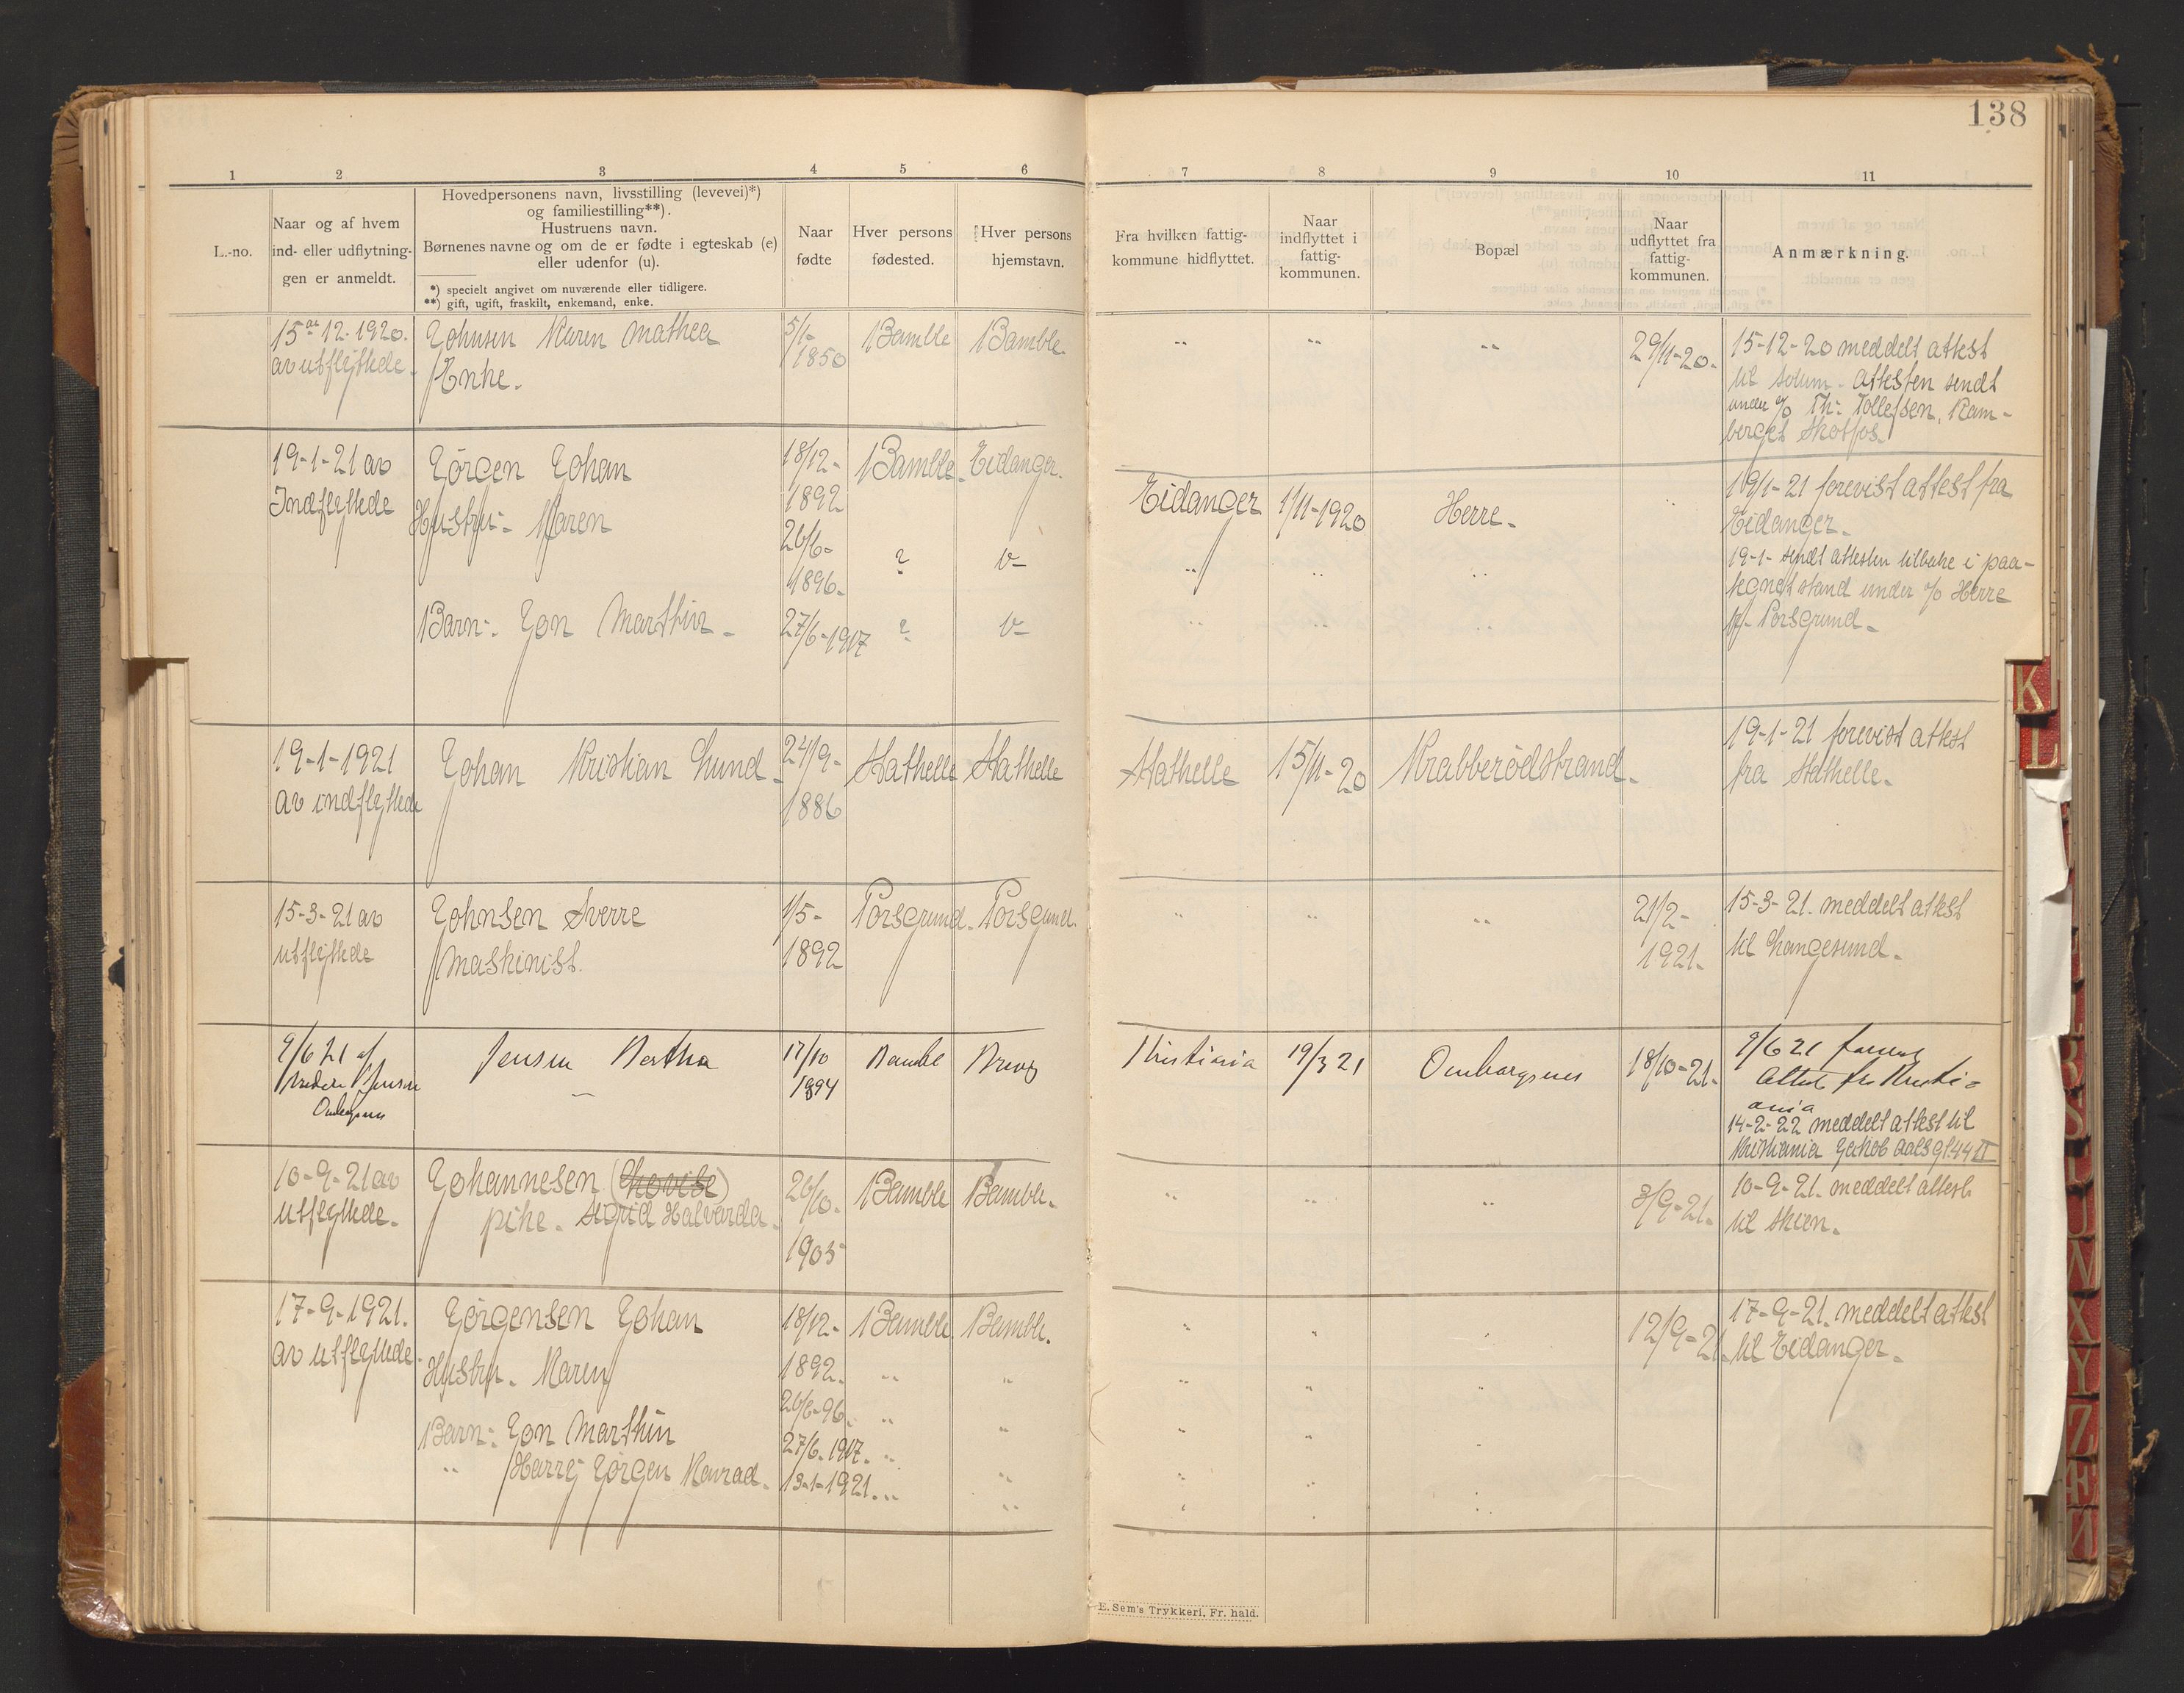 138
1 2 3 4 5 6 7 8 9 10 11
L.-no.
Naar og af hvem
ind- eller udflytnin-
gen er anmeldt.
Hovedpersonens navn, livsstilling (levevei)*)
og familiestilling**).
Hustruens navn.
Børnenes navne og om de er fødte i egteskab (e)
eller udenfor (u).
*) specielt angivet om nuværende eller tidligere.
**) gift, ugift, fraskilt, enkemand, enke.
Naar
fødte
Hver persons
fødested.
Hver persons
hjemstavn.
Fra hvilken fattig-
kommune hidflyttet.
Naar
indflyttet i
fattig-
kommunen.
Bopæl
Naar
udflyttet fra
fattig-
kommunen.
Anmærkning.
15de 12-1920.
av utflyttede.
Johnsen Karen Mathea
Enke.
5/1-
1850
Bamble
Bamble.
" " "
29/11-20.
15-12-20 meddelt attest
til Solum. Attesten sendt
under % Th: Tollefsen, Ram-
berget Skotfos.
19-1-21 av
Indflyttede
Jörgen Johan
Hustru:- Maren
Barn:. Jon Marthin -
18/12-
1892
26/6-
1896-
27/6-1917
Bamble.
?
?
Eidanger.
v-
v-
Eidanger
"
"
1/11-1920
"
"
Herre-
"
"
19/1-21 forevist attest fra
Eidanger-
19-1- sendt attesten tilbake i paa-
tegnet stand under % Herre
pr- Porsgrund-
19-1-1921
av indflyttede
Johan Kristian Lund-
24/9-
1886
Stathelle
Stathelle
Stathelle
15/11-20
Krabberödstrand-
19-1-21 forevist attest
fra Stathelle-
15-3-21 av
utflyttede
Johnsen Sverre
Maskinist.
1/5-
1892
Porsgrund.
Porsgrund.
" " "
21/2-
1921-
15-3-21. meddelt attest
til Langesund-
9/6 21 af
Jensen
Jensen Bertha
17/10
1894
Bamble
Brevig
Kristiania
19/3 21
Omborgsnes
18/10-21-
9/6 21
Attest fra Kristi-
ania
14-2-22 meddelt attest til
Kristiania Jakob Aalsgt. 44 II
10-9-21 av
utflyttede-
Johannesen (Lovise)
pike- Sigrid Halvarda.
26/10-
1905
Bamble
Bamble.
" " "
3/9-21-
10-9-21. meddelt attest
til Skien-
17-9-1921.
av utflyttede.
Jörgensen Johan
Hustru. Maren
Barn:. Jon Marthin
" Harry Jörgen Konrad.
18/12-
1892.
26/6-96.
27/6-1917.
13-1-1921.
Bamble
"
"
"
"
Bamble.
"
"
"
"
12/9-21.
17-9-21. meddelt attest
til Eidanger-
E. Sem's Trykkeri, Fr. hald.
K
L
R
S
U
W
X
Y
Z
Æ
Ø